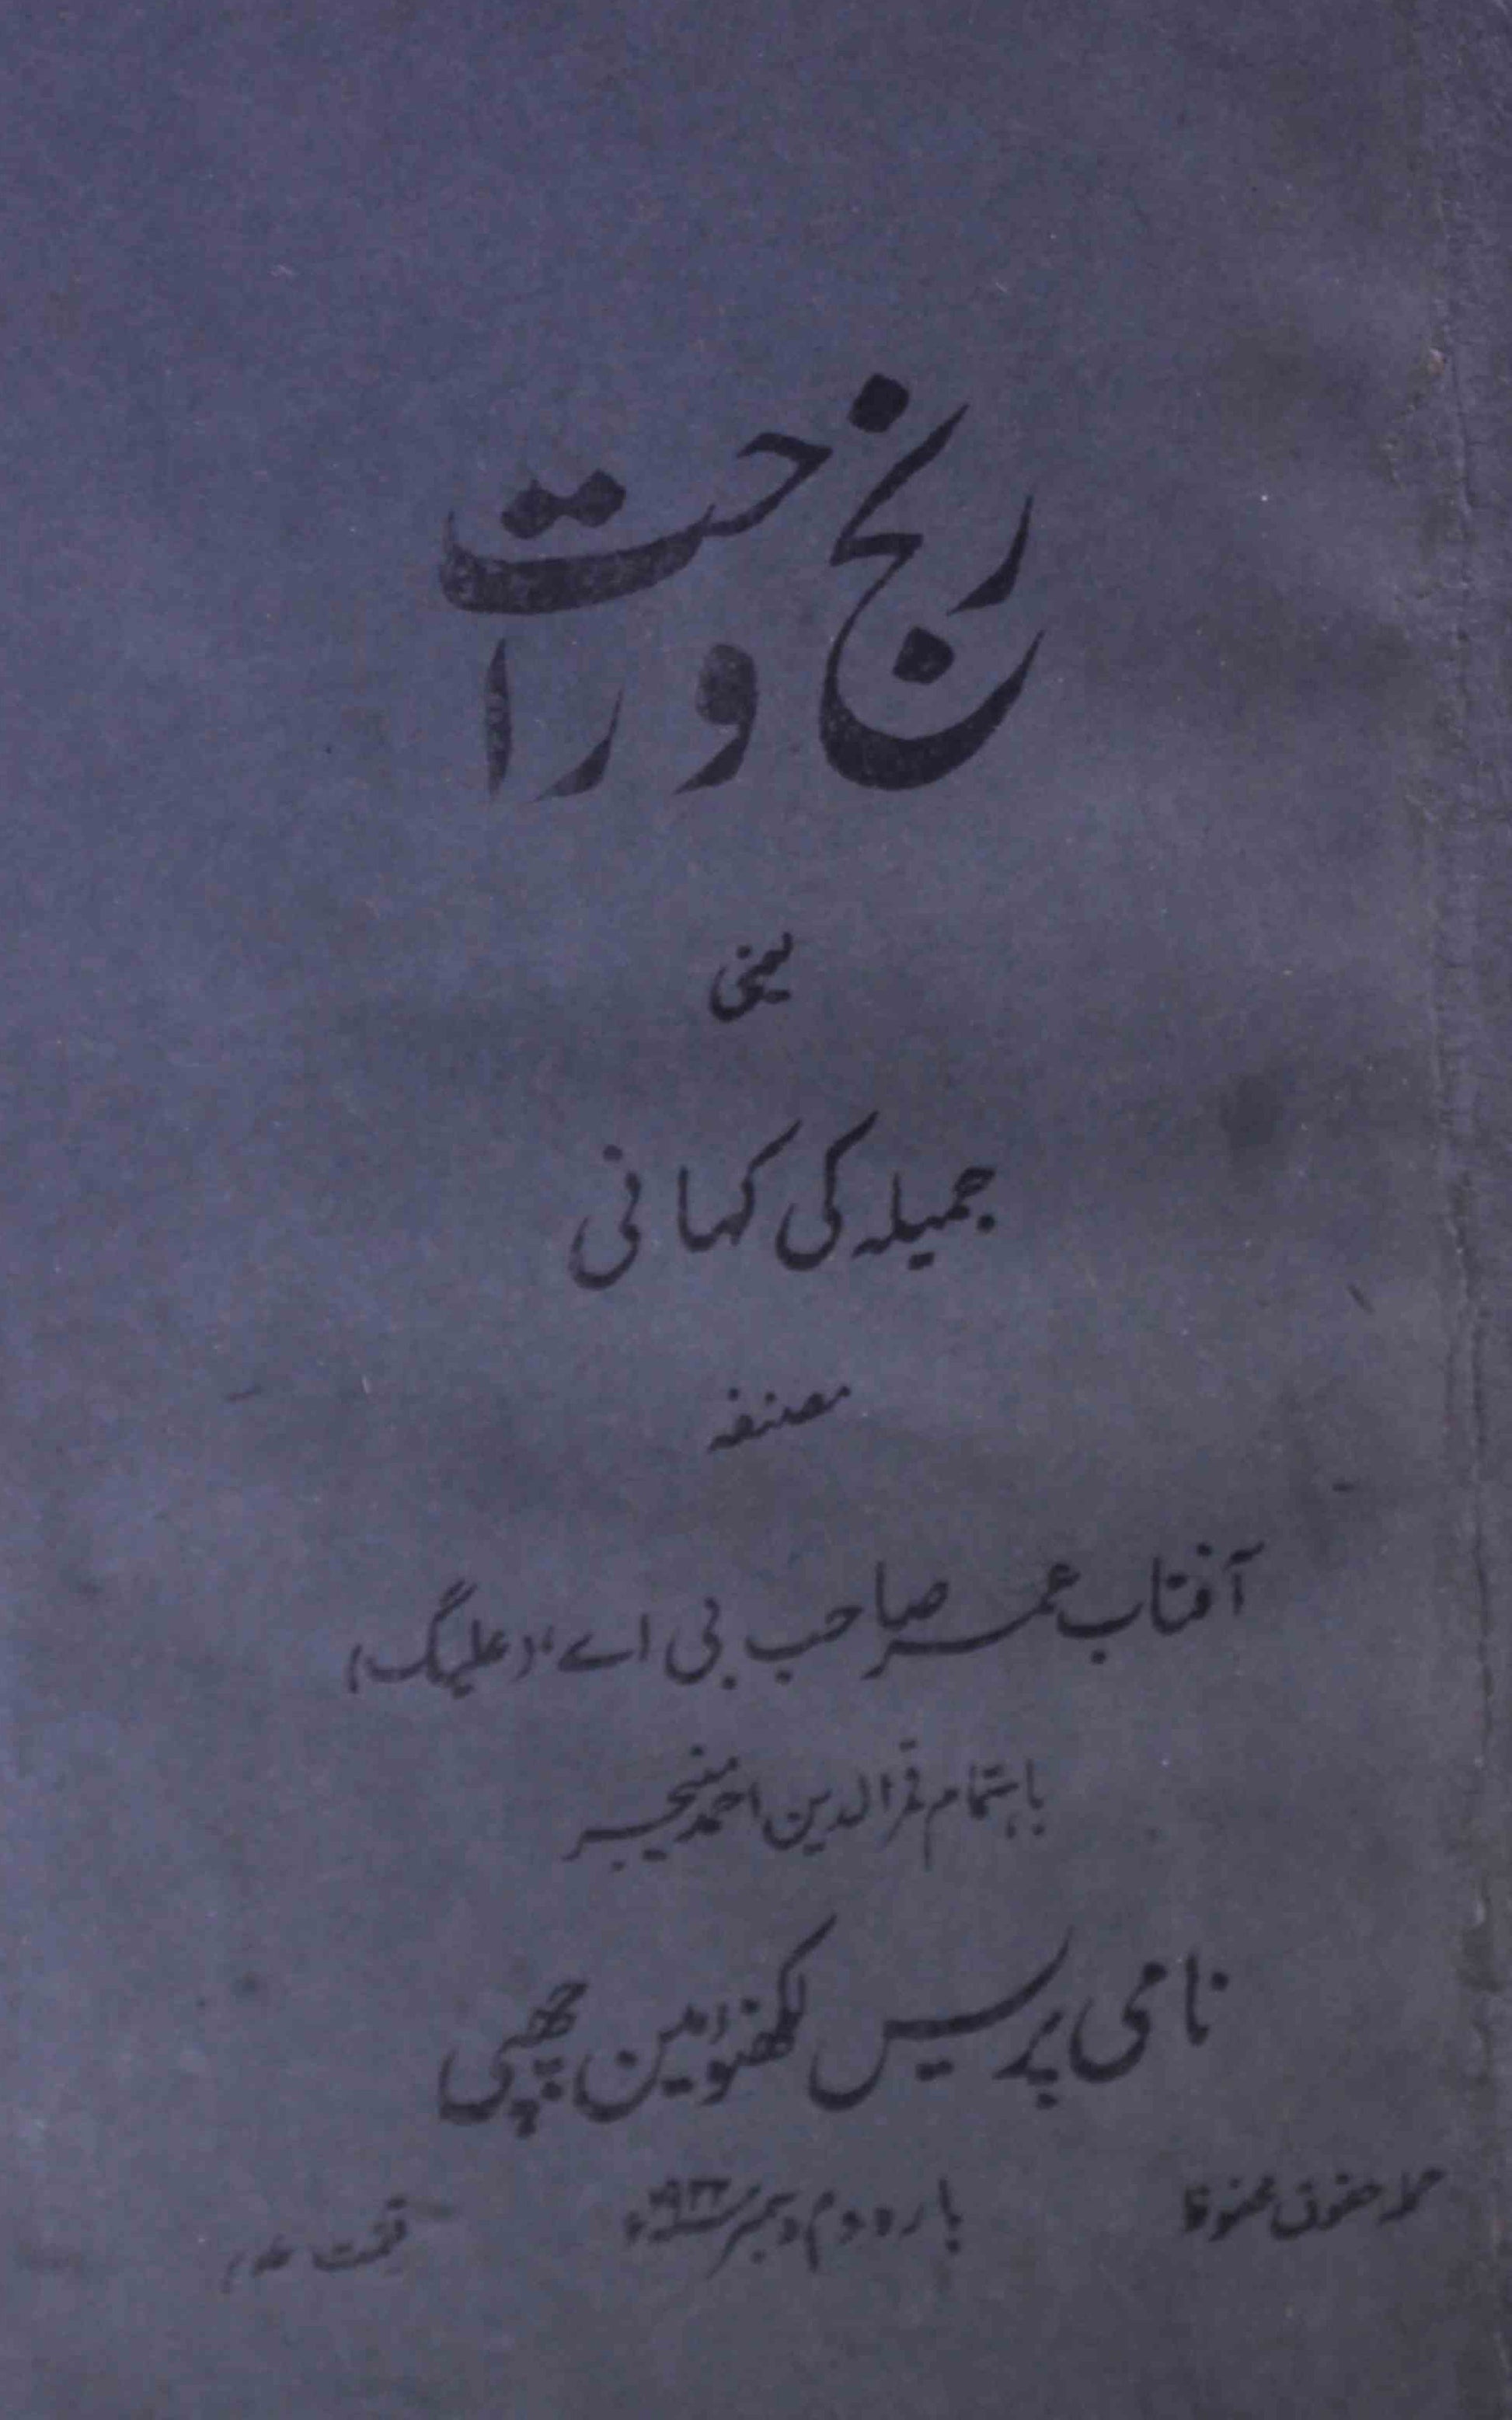 رنج و راحت
یعنی
جمیلہ کی کہانی
مصنفہ
آفتاب عمر صاحب بی اے، (علیگ)
باہتمام قمرالدین احمد منیجر
نامی پریس لکھنؤ مین چھپی
جملہ حقوق محفوظ
بار دوم دسمبر
قیمت